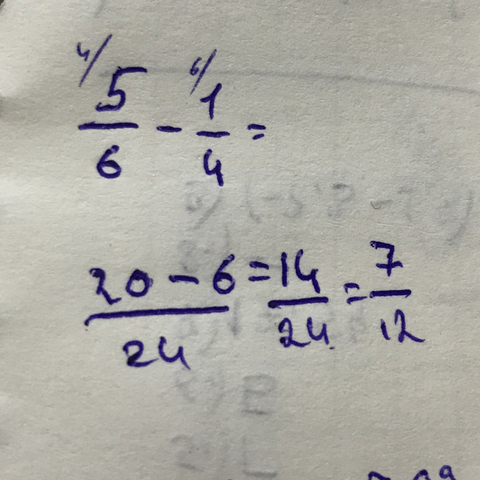 4/ 5/6 - 6/ 1/4 =
(20 - 6)/24 = 14/24 = 7/12